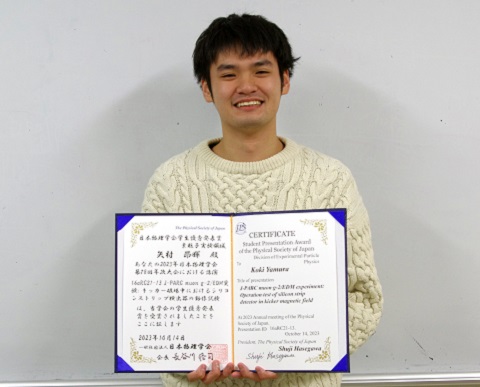 The Physical Society of Japan
日本物理学会学生優秀発表賞
素粒子実験領域
矢村 昂暉 殿
あなたの2023年日本物理学会
第78回年次大会における講演
16aRC21-13 J-PARC muon g-2/EDM実
験: キッカー磁場中におけるシリコ
ンストリップ検出器の動作試験
は、当学会の学生優秀発表
賞を受賞されましたことを
ここに証します
2023年10月14日
一般社団法人日本物理学会
会長 長谷川 修司
CERTIFICATE
Student Presentation Award
of the Physical Society of Japan
Division of Experimental Particle
Physics
To
Koki Yamura
Title of presentation:
J-PARC muon g-2/EDM experiment:
Operation test of silicon strip
detector in kicker magnetic field
At 2023 Annual meeting of the Physical
Society of Japan,
Presentation ID: 16aRC21-13,
October 14, 2023
President, The Physical Society of Japan
Shuji Hasegawa
Shuji Hasegawa